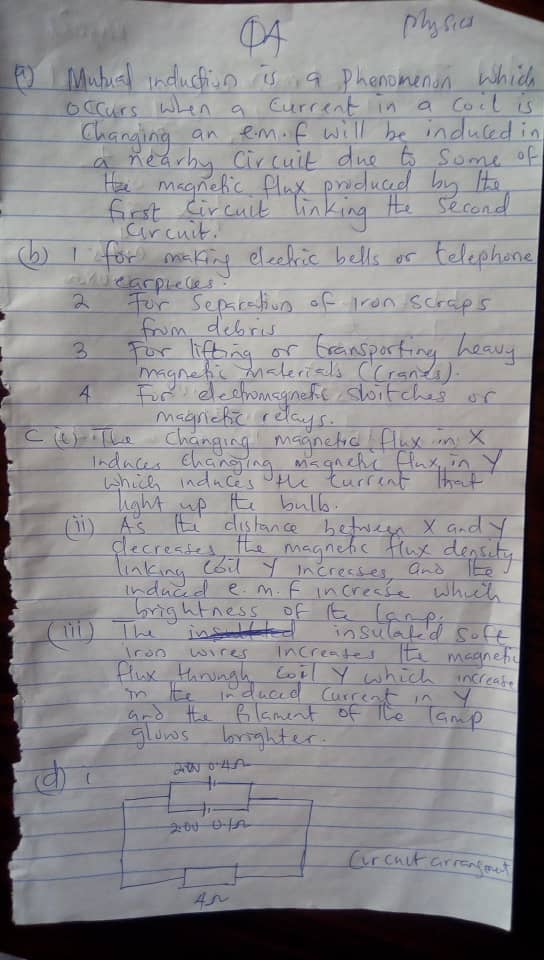 Q4 physics
a) Mutual induction is a phenomenon which
occurs when a current in a coil is
Changing an e.m.f will be induced in
a nearby circuit due to some of
the magnetic flux produced by the
first circuit linking the second
circuit.
(b) 1 for making electric bells or telephone
earpieces.
2 For Separation of iron scraps
from debris
3 For lifting or transporting heavy
magnetic materials (Cranes).
4 For electromagnetic switches or
magnetic relays.
C (i) The Changing magnetic flux in X
Induces Changing magnetic flux in Y
which induces the current that
light up the bulb.
(ii) As the distance between X and Y
decreases, the magnetic flux density
linking coil Y increases, and the
induced e.m.f increase which
brightness of the lamp.
(iii) The insulated soft
iron wires increases the magnetic
flux through coil Y which increase
in the induced current in Y
and the filament of the lamp
glows brighter.
(d) i 0.4Ω
2.0V 0.1Ω
Circuit arrangement
4Ω